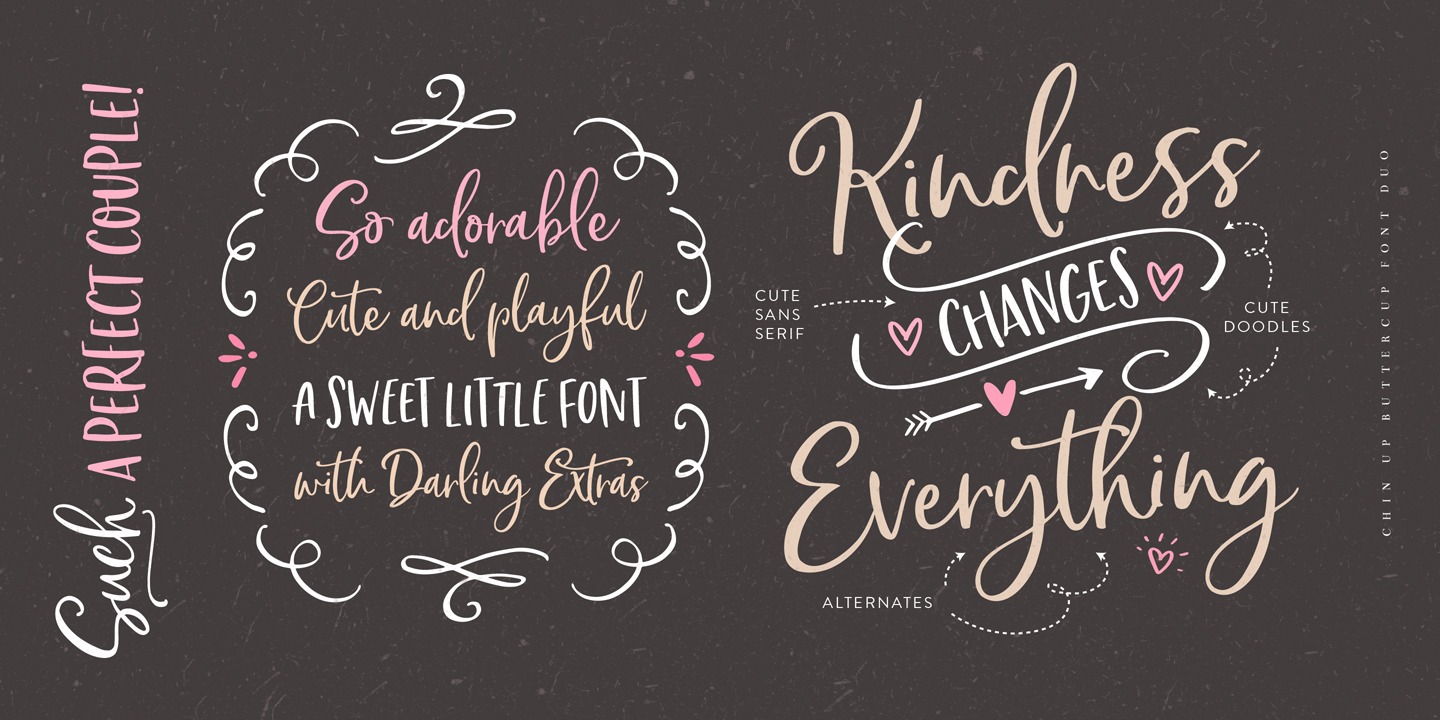 Such A PERFECT COUPLE!
So adorable
Cute and playful
A SWEET LITTLE FONT
with Darling Extras
Kindness
CHANGES
Everything
CUTE
SANS
SERIF
CUTE
DOODLES
ALTERNATES
CHIN UP BUTTERCUP FONT DUO